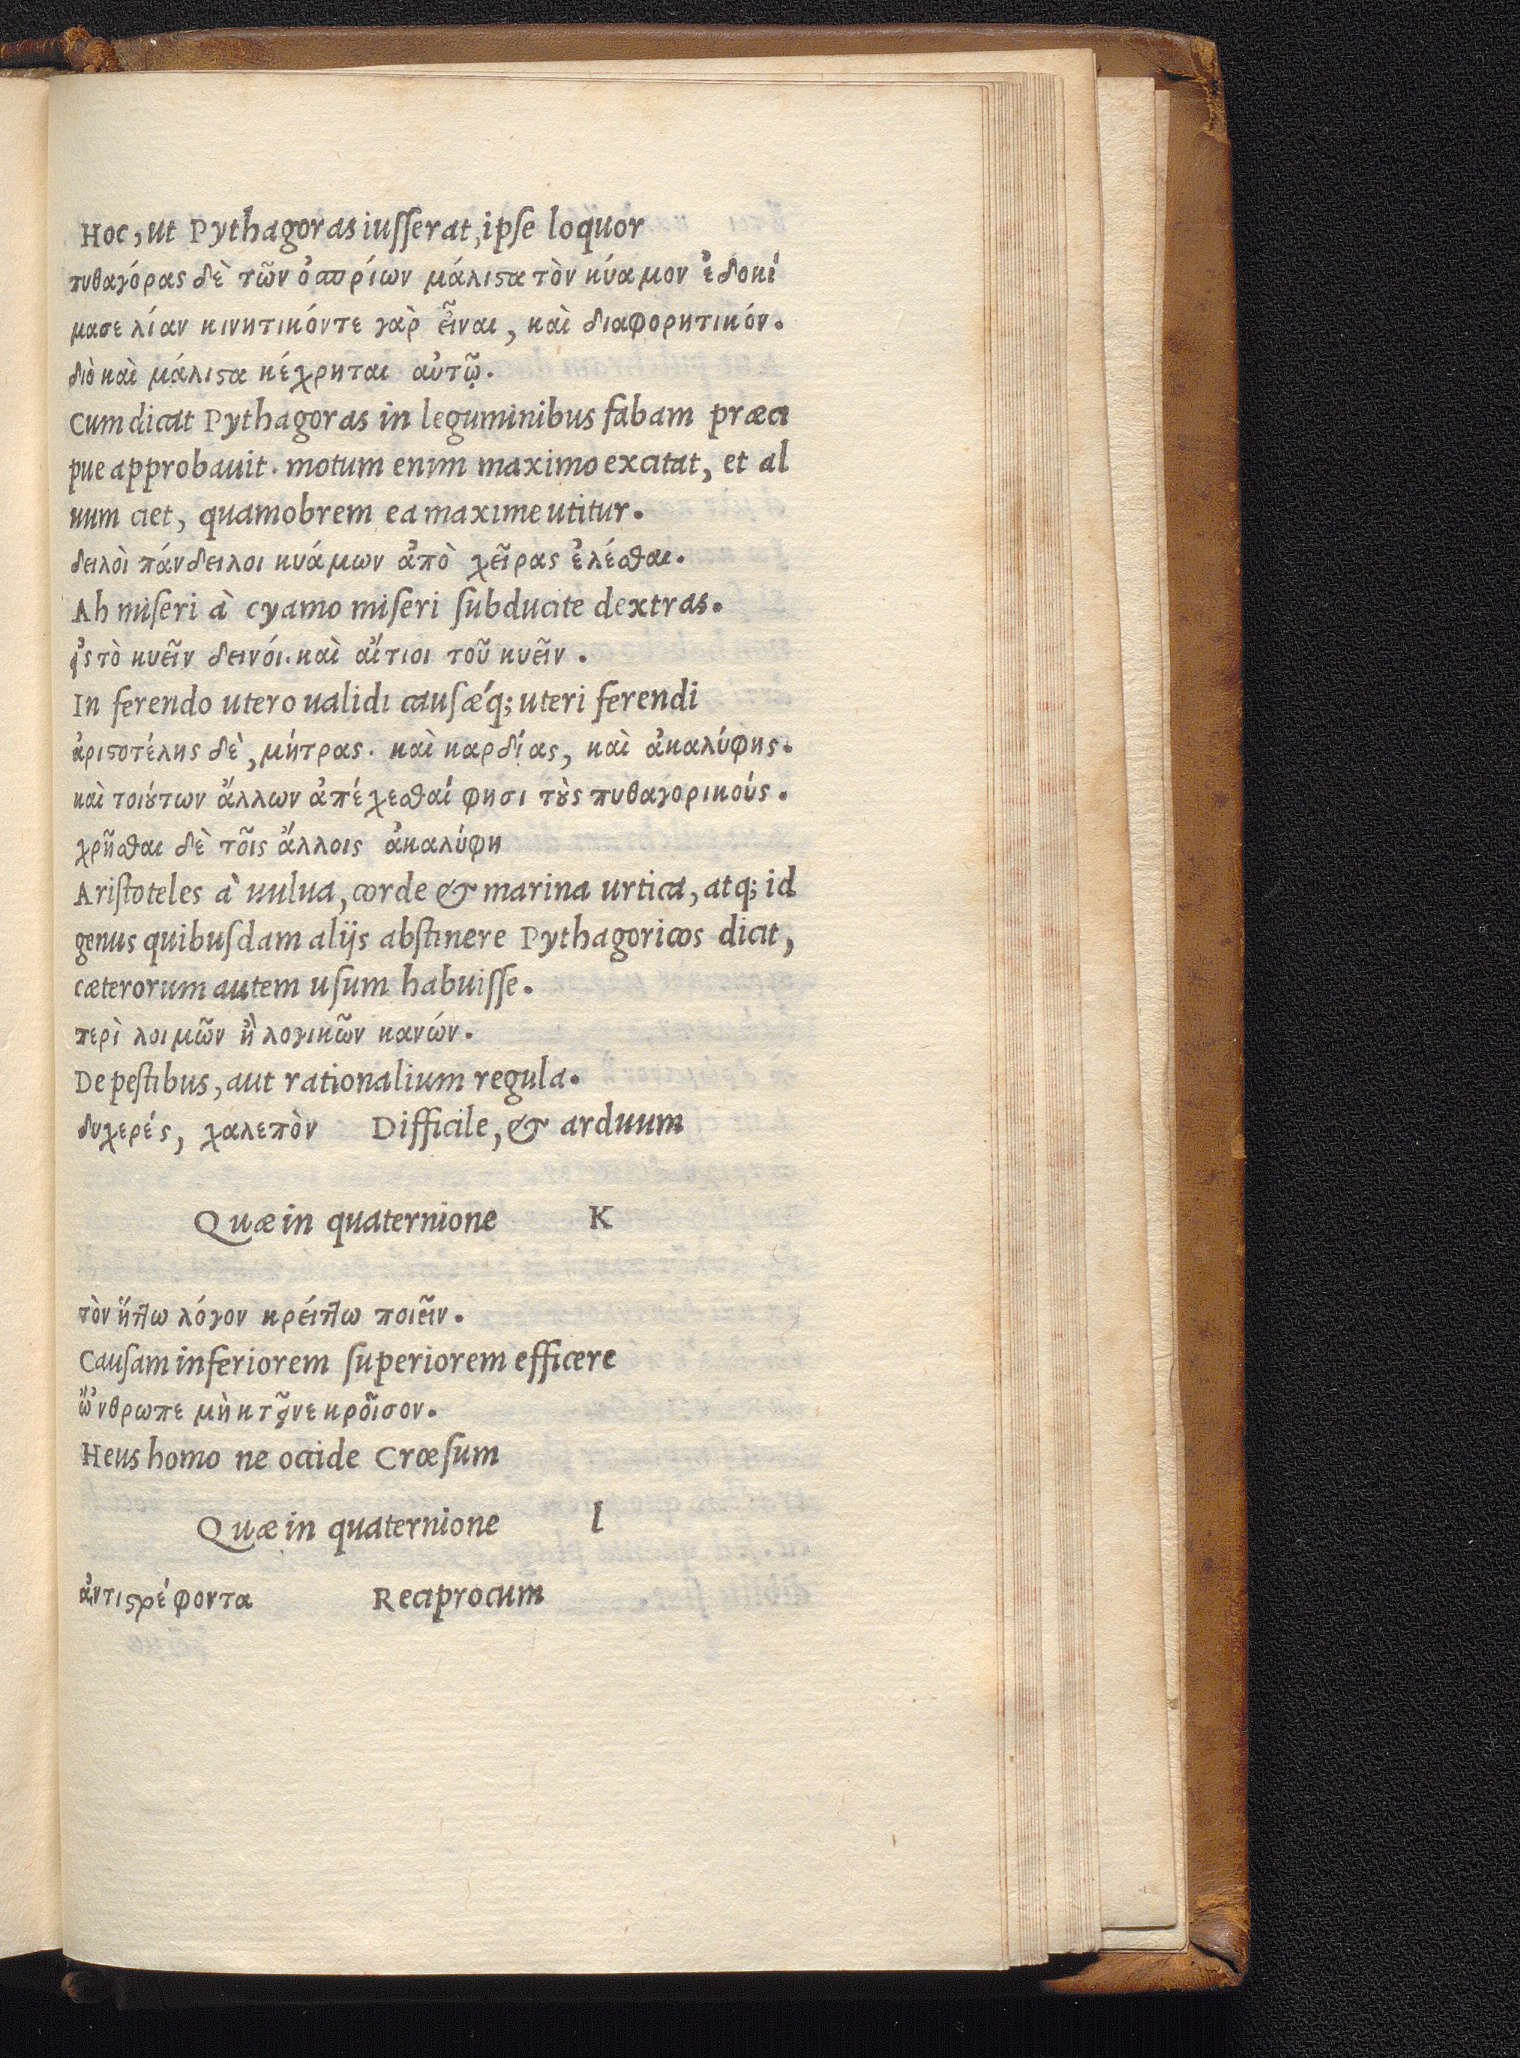 Hoc, ut Pythagoras iusserat, ipse loquor
πυθαγόρας δὲ τῶν ὀσπρίων μάλιϛα τὸν κύαμον ἐδοκί
μασε λίαν κινητικόντε γὰρ εἶναι, καὶ διαφορητικόν.
διὸ καὶ μάλιϛα κέχρηται αὐτῷ.
Cum dicat Pythagoras in leguminibus fabam præci
pue approbauit. motum enim maximo excitat, et al
uum ciet, quamobrem ea maxime utitur.
δειλοὶ πάνδειλοι κυάμων ἀπὸ χεῖρας ἐλέσθαι.
Ah miseri à cyamo miseri subducite dextras.
ἐς τὸ κυεῖν δεινόι. καὶ αἴτιοι τοῦ κυεῖν.
In ferendo utero ualidi causæq́; uteri ferendi
ἀριϛοτέλης δὲ, μήτρας. καὶ καρδίας, καὶ ἀκαλύφης.
καὶ τοιȣ́των ἄλλων ἀπέχεσθαί φησι τȣ̀ς πυθαγορικούς.
χρῆσθαι δὲ τοῖς ἄλλοις ἀκαλύφη
Aristoteles à uulua, corde & marina urtica, atq; id
genus quibusdam alijs abstinere Pythagoricos dicit,
cæterorum autem usum habuisse.
περὶ λοιμῶν ἢ λογικῶν κανών.
De pestibus, aut rationalium regula.
δυχερές, χαλεπὸν Difficile, & arduum
Quæ in quaternione K
τὸν ἥττω λόγον κρείττω ποιεῖν.
Causam inferiorem superiorem efficere
ὤνθρωπε μὴ κτεῖνε κροῖσον.
Heus homo ne occide Crœsum
Quæ in quaternione l
ἀντιϛρέφοντα Reciprocum